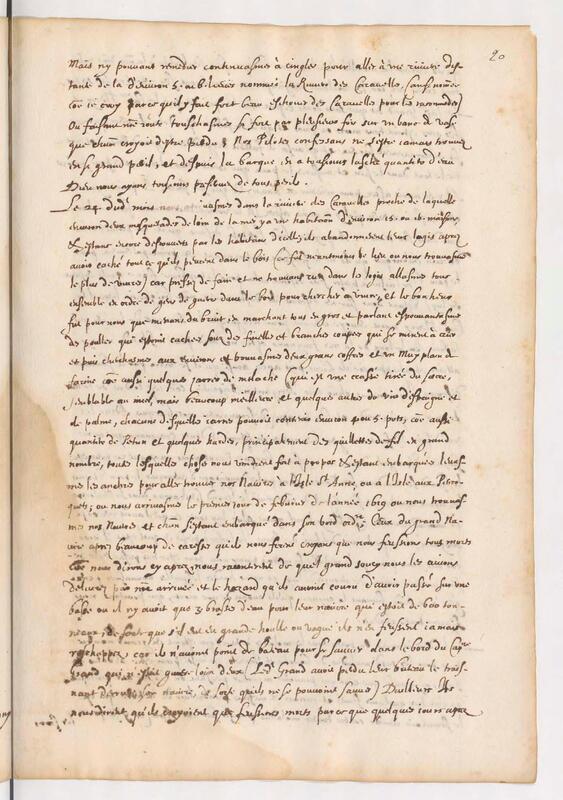 20
Mais ny pouvant remedier continuasmes à cingler pour aller à une riviere dis-
tante de la d'environ 5. ou 6. lieües nommée la Riviere des Caravelles, sans nommée
com ie croy parce qu'il y fait fort beau des Caravelles pour les
Ou faisant nre route touchasmes si fort par plusieurs fois sur un banc de vase
que chun croyoit d'estre perdu Nos Pilotes confessans ne s'estre iamais trouvez
en si grand peril, et depuis la barque en a tousiours lasché quantité d'eau
Dieu nous ayant tousiours preservez de tous perils.
Le 24. dud. mois dans la riviere des Caravelles proche de laquelle
environ deux mosquetades de loin de la mer y a une habitaon d'environ 15. ou 16. maisons
Et estans encore descouverts par les habitans d'icelle ils abandonnerent leurs logis apres
avoir caché tout ce qu'ils peurent dans le bois (ce fut neantmoins le lieu ou nous trouvasmes
le plus de vivres) car pressez de faim et ne trouvans rien dans les logis allasmes tous
ensemble en ordre de gens de guerre dans le bois pour chercher à vivre, et le bonheur
fut pour nous que menans du bruit en marchant tous en gros et parlans espouvantasmes
des poulles qui estoient cachées soubz des fueilles et branches coupées qui se mirent à crier
et puis cherchasmes aux environs et trouvasmes deux grans coffres et un Muy plain de
farine com aussi quelques jarres de melache (qui est une crassse tirée du sucre,
semblable au miel, mais beaucoup meilleure et quelques autres de vin d'Espaigne et
de palme, chacune desquelles jarres pouvoit contenir environ 4 ou 5. pots, com aussi
quantité de Petun et quelques hardes, principalement des quillettes de fil en grand
nombre, toutes lesquelles choses nous vindrent fort à propos Et estans embarquées levas-
mes les anchres pour aller trouver nos Navires à l'Isle Ste Anne, ou a l'Isle aux Perro-
quets, ou nous arrivasmes le premier jour de febvrier de l'année 1619 ou nous trouvas-
mes nos Navires et chun s'estant embarqué dans son bord ordre Ceux du grand Na-
vire apres beaucoup de caresses qu'ils nous firent croyans que nous feussions tous morts
com nous dirons cy apres, nous raconterent de quel grand soucy nous les avions
delivrez par nre arrivée et le hazard qu'ils avoient couru d'avoir passé sur une
basse ou il n'y avoit que 3 brasses d'eau pour leur navire qui estoit de 600 ton-
neaux, de sorte que s'il eut eu grande houlle ou vague ils n'en feussent iamais
rechappez, car ils n'avoient point de bateau pour se sauver dans le bord du Cape
Grand qui n'estoit guere loin d'eux (Led. Grand avoit perdu leur bateau le trais-
nant derriere leur navire, de sorte qu'ils ne se pouvoient sauver) D'ailleurs Ils
nous dirent qu'ils croyoient que feussions morts parce que quelques iours apres